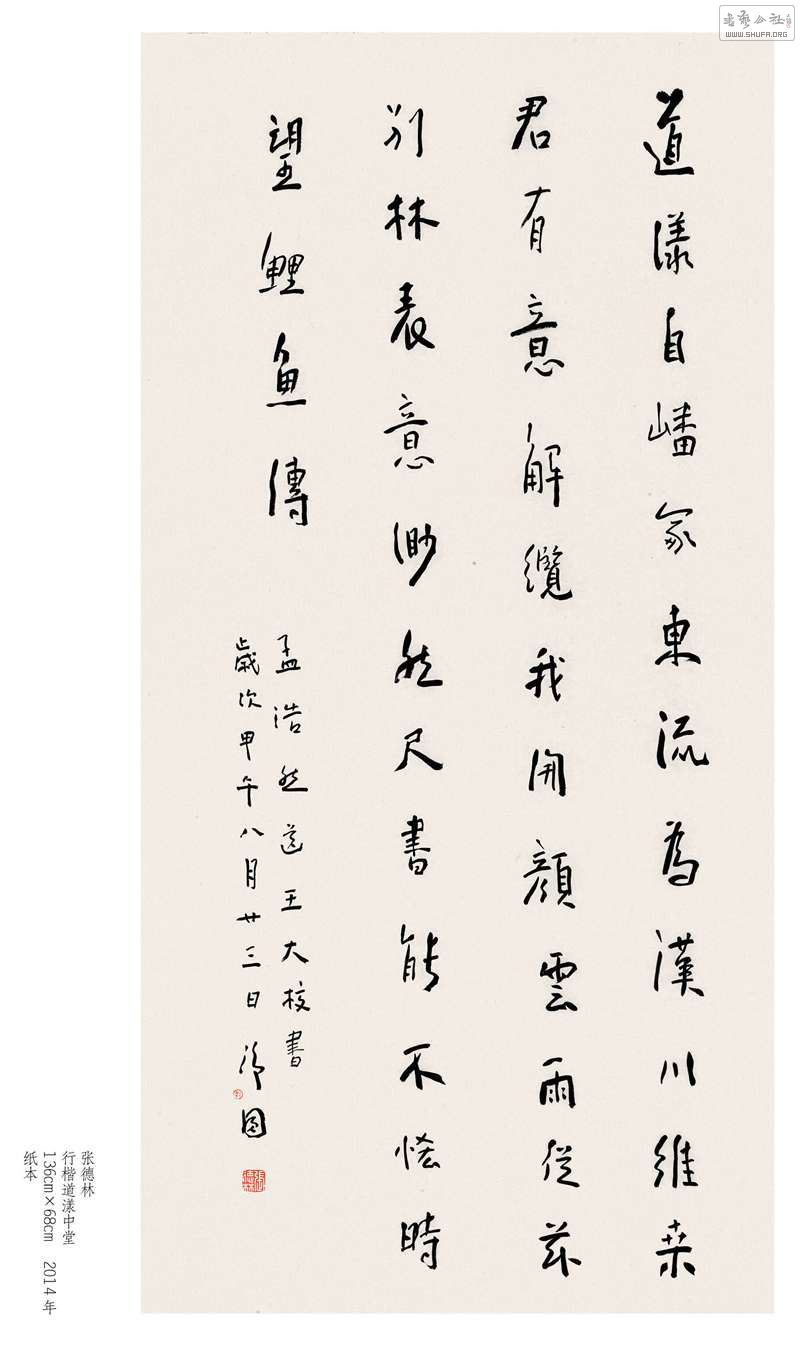 道漾自嶓冢東流為漢川維桑
君有意解纜我開顔雲雨從茲
別林表意渺然尺書能不悋時
望鯉魚傳
孟浩然送王大校書
歲次甲午八月廿三日
张德林
行楷道漾中堂
136cm×68cm 2014年
纸本
書藝公社
WWW.SHUFA.ORG